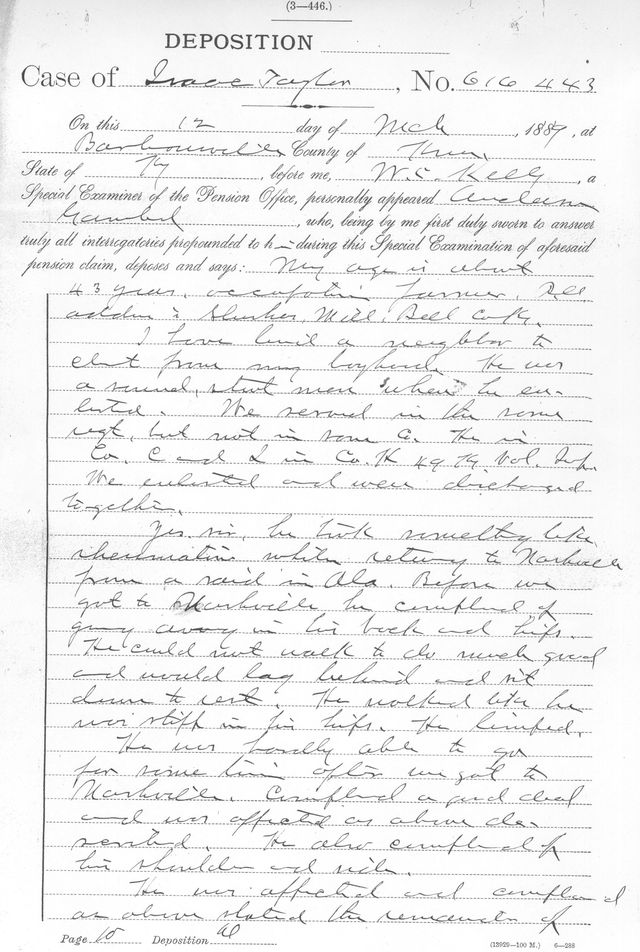 (3—446.)
DEPOSITION
Case of Isaac Taylor, No. 616 443
On this 12 day of Mch, 1889, at
Barbourville County of Knox
State of Ky, before me, W. C. Kelly, a
Special Examiner of the Pension Office, personally appeared Anderson
Gambrel, who, being by me first duly sworn to answer
truly all interrogatories propounded to h— during this Special Examination of aforesaid
pension claim, deposes and says: My age is about
43 years, occupation farmer, P.O.
address: Slusher Mill, Bell Co Ky.
I have lived a neighbor to
clmt from my boyhood. He was
a sound, stout man when he en-
listed. We served in the same
regt, but not in same Co. He in
Co. C and I in Co. K 49 Ky. Vol. Inf.
We enlisted and were discharged
together.
Yes sir, he took something like
rheumatism while returng to Nashville
from a raid in Ala. Before we
got to Nashville he complned of
givng away in his back and hips.
He could not walk to do much good
and would lag behind and sit
down to rest. He walked like he
was stiff in his hips. He limped.
He was hardly able to go
for some time after we got to
Nashville. Complned a good deal
and was affected as above de-
scribed. He also complned of
his shoulder and side.
He was affected and complned
as above stated the remainder of
Page 10 Deposition
(13929—100 M.) 6—288